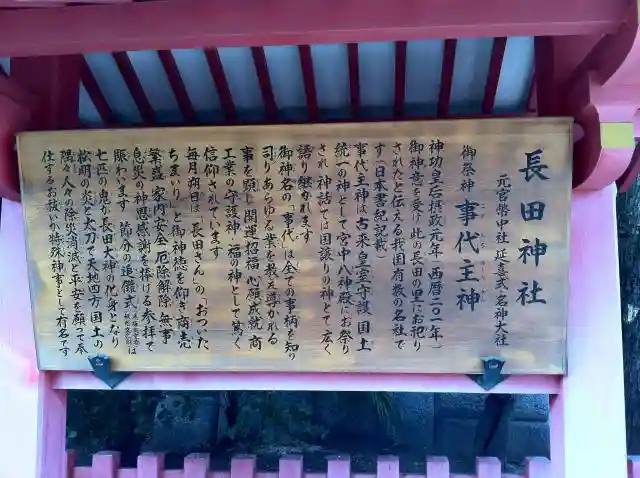 長田神社
元官幣中社 延喜式名神大社
御祭神 事代主神
神功皇后摂政元年(西暦二〇一年)
御神意を受け此の長田の里にお祀り
されたと伝える我国有数の名社で
す(日本書紀記載)
事代主神は古来皇室守護 国土
統一の神として宮中八神殿にお祭り
され 神話では国譲りの神として広く
語り継がれます
御神名の「事代」は全ての事柄を知り
司りあらゆる業を教え導かれる
事を顕し 開運招福 心願成就 商
工業の守護神 福の神として篤く
信仰されています
毎月朔日は「長田さん」の「おついた
ちまいり」と御神徳を仰ぎ 商売
繁盛 家内安全 厄除解除 無事
息災の神恩感謝を捧げる参拝で
賑わいます 節分の追儺式は
七匹の鬼が長田大神の化身となり
松明の炎と太刀で天地四方国土の
隅々人々の除災消滅と平安を願って奉
仕するお祓いの特殊神事として有名です